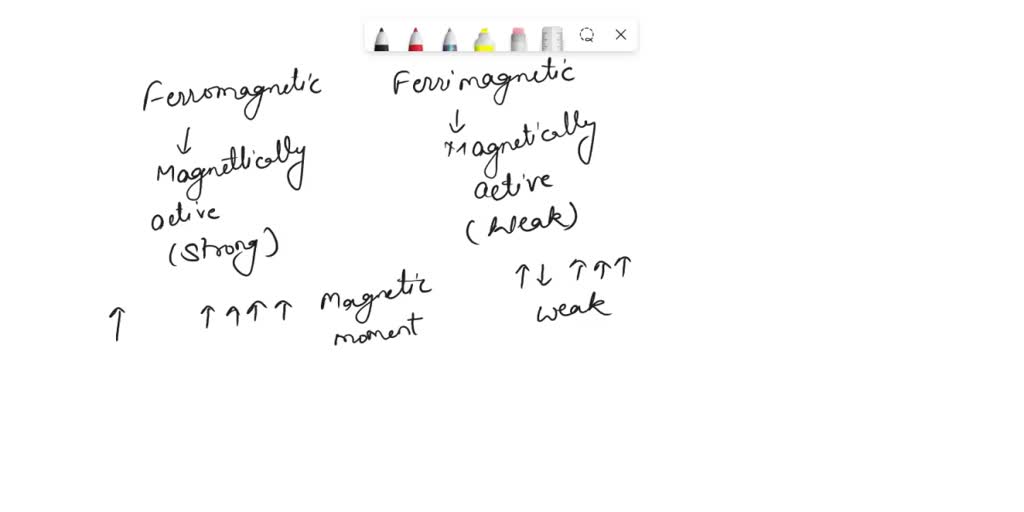 Ferromagnetic
↓
Magnetically
active
(strong)
↑ ↑↑↑↑ Magnetic
moment
Ferrimagnetic
↓
Magnetically
active
(weak)
↑↓ ↑↑↑
weak